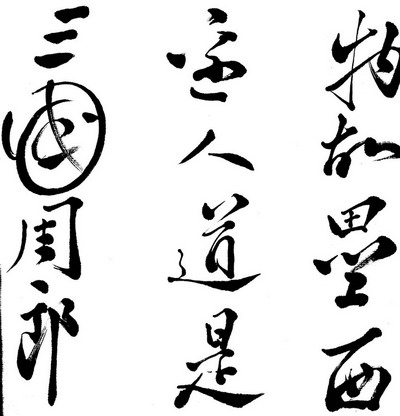 物故壘西
邊人道是
三國周郎